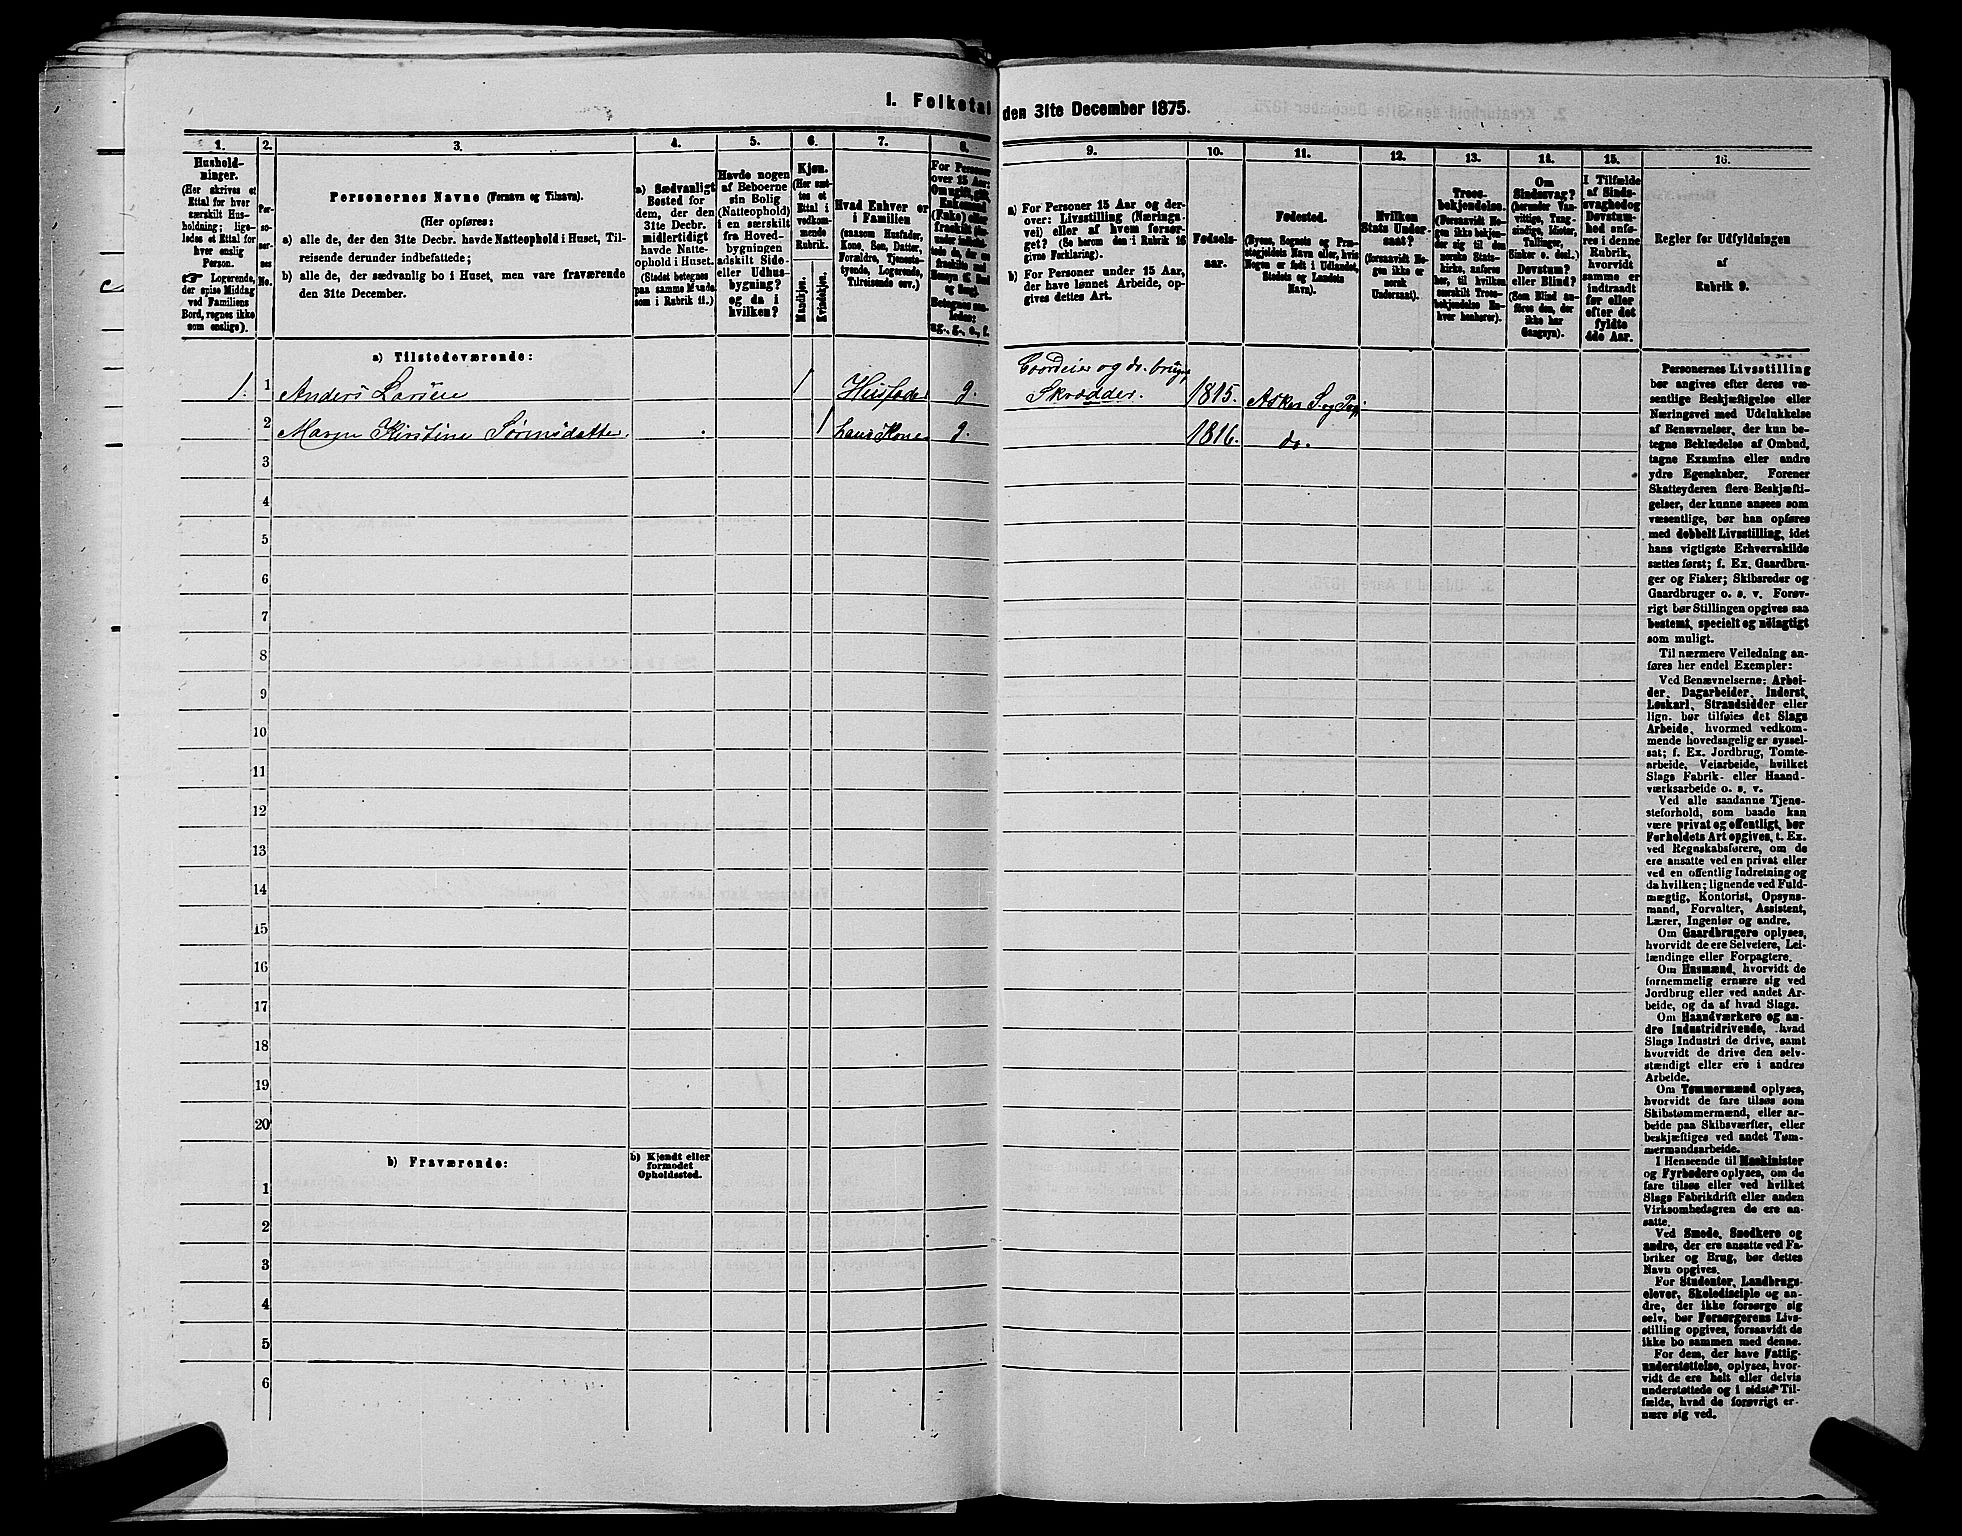 I. Folketal den 31te December 1875.
1. 2. 3. 4. 5. 6. 7. 8. 9. 10. 11. 12. 13. 14. 15. 16.
Hushold-
ninger.
(Her skrives et
Ettal for hver
særskilt Hus-
holdning; lige-
ledes et Ettal for
hver enslig
Person.
☞ Logerende,
der spise Middag
ved Familiens
Bord, regnes ikke
som enslige).
Per-
so-
ner-
nes
No.
Personernes Navne (Fornavn og Tilnavn).
(Her opføres:
a) alle de, der den 31te Decbr. havde Natteophold i Huset, Til-
reisende derunder indbefattede;
b) alle de, der sædvanlig bo i Huset, men vare fraværende
den 31te December.
a) Sædvanligt
Bosted for
dem, der den
31te Decbr.
midlertidigt
havde Natte-
ophold i Huset.
(Stedet betegnes
paa samme Maade
som i Rubrik 11.)
Havde nogen
af Beboerne
sin Bolig
(Natteophold)
i en særskilt
fra Hoved-
bygningen
adskilt Side-
eller Udhus-
bygning?
og da i
hvilken?
Kjøn.
(Her sæt-
tes et
Ettal i
vedkom-
mende
Rubrik.
Mandkjøn.
Kvindekjøn.
Hvad Enhver er
i Familien
(saasom Husfader,
Kone, Søn, Datter,
Forældre, Tjeneste-
tyende, Logerende,
Tilreisende osv.
For Personer
over 15 Aar:
Om ugift, gift,
Enkemand
(Enke) eller
fraskilt
ug., g., e., f.
a) For Personer 15 Aar og der-
over: Livsstilling (Nærings-
vei) eller af hvem forsør-
get? (Se herom den i Rubrik 16
givne Forklaring).
b) For Personer under 15 Aar,
der have lønnet Arbeide, op-
gives dettes Art.
Fødsels-
aar.
Fødested.
(Byens, Sognets og Præ-
stegjeldets Navn eller, hvis
Nogen er født i Udlandet,
Stedets og Landets
Navn).
Hvilken
Stats Under-
saat?
(forsaavidt No-
gen ikke er
norsk
Undersaat).
Troes-
bekjendelse.
(Forsaavidt No-
gen ikke bekjen-
der sig til den
norske Stats-
kirke, anføres
her, til hvilken
særskilt Troes-
bekjendelse En-
hver henhører).
Om
Sindssvag?
(herunder Van-
vittige, Tung-
sindige, Idioter,
Tullinger,
Sinker o. desl.)
Døvstum?
eller Blind?
(Som Blind an-
føres den, der
ikke har
Gangsyn).
I Tilfælde
af Sinds-
svaghed og
Døvstum-
hed anfø-
res i denne
Rubrik,
hvorvidt
samme er
indtraadt
før eller
efter det
fyldte
4de Aar.
Regler for Udfyldningen
af
Rubrik 9.
a) Tilstedeværende:
Gaardeier og do. bruger
1. 1 Anders Larsen 1 Husfader g. Skrædder. 1815. Asker S. og Pgj.
2 Maren Kirstine Sørensdatter. 1 hans Kone g. 1816. do.
3
4
5
6
7
8
9
10
11
12
13
14
15
16
17
18
19
20
b) Fraværende:
b) Kjendt eller
formodet
Opholdssted.
1
2
3
4
5
6
Personernes Livsstilling
bør angives efter deres væ-
sentlige Beskjæftigelse eller
Næringsvei med Udelukkelse
af Benævnelser, der kun be-
tegne Beklædelse af Ombud,
tagne Examina eller andre
ydre Egenskaber. Forener
Skatteyderen flere Beskjæfti-
gelser, der kunne ansees som
væsentlige, bør han opføres
med dobbelt Livsstilling, idet
hans vigtigste Erhvervskilde
sættes først; f. Ex. Gaardbru-
ger og Fisker; Skibsreder og
Gaardbruger o. s. v. Forøv-
rigt bør Stillingen opgives saa
bestemt, specielt og nöiagtigt
som muligt.
Til nærmere Veiledning an-
føres her endel Exempler:
Ved Benævnelserne: Arbei-
der, Dagarbeider, Inderst,
Løskarl, Strandsidder eller
lign. bør tilføies det Slags
Arbeide, hvormed vedkom-
mende hovedsagelig er syssel-
sat; f. Ex. Jordbrug, Tomte-
arbeide, Veiarbeide, hvilket
Slags Fabrik- eller Haand-
værksarbeide o. s. v.
Ved alle saadanne Tjene-
steforhold, som baade kan
være privat og offentligt, bør
Forholdets Art opgives, t. Ex.
ved Regnskabsførere, om de
ere ansatte ved en privat eller
ved en offentlig Indretning og
da hvilken; lignende ved Fuld-
mægtig, Kontorist, Opsyns-
mand, Forvalter, Assistent,
Lærer, Ingeniør og andre.
Om Gaardbrugere oplyses,
hvorvidt de ere Selveiere, Lei-
lændinge eller Forpagtere.
Om Husmænd, hvorvidt de
fornemmelig ernære sig ved
Jordbrug eller ved andet Ar-
beide, og da af hvad Slags.
Om Haandværkere og an-
dre Industridrivende, hvad
Slags Industri de drive, samt
hvorvidt de drive den selv-
stændigt eller ere i andres
Arbeide.
Om Tømmermænd oplyses,
hvorvidt de fare tilsøs som
Skibstømmermænd, eller ar-
beide paa Skibsværfter, eller
beskjæftiges ved andet Tøm-
mermandsarbeide.
I Henseende til Maskinister
og Fyrbødere oplyses, om de
fare tilsøs eller ved hvilket
Slags Fabrikdrift eller anden
Virksomhedsgren de ere an-
satte.
Ved Smede, Snedkere og
andre, der ere ansatte ved Fa-
briker og Brug, bør dettes
Navn opgives.
For Studenter, Landbrugs-
elever, Skoledisciple og an-
dre, der ikke forsørge sig
selv, bør Forsørgerens Livs-
stilling opgives, forsaavidt de
ikke bo sammen med denne.
For dem, der have Fattig-
understøttelse, oplyses, hvor-
vidt de ere helt eller delvis
understøttede og i sidste Til-
fælde, hvad de forøvrigt er-
nære sig ved.